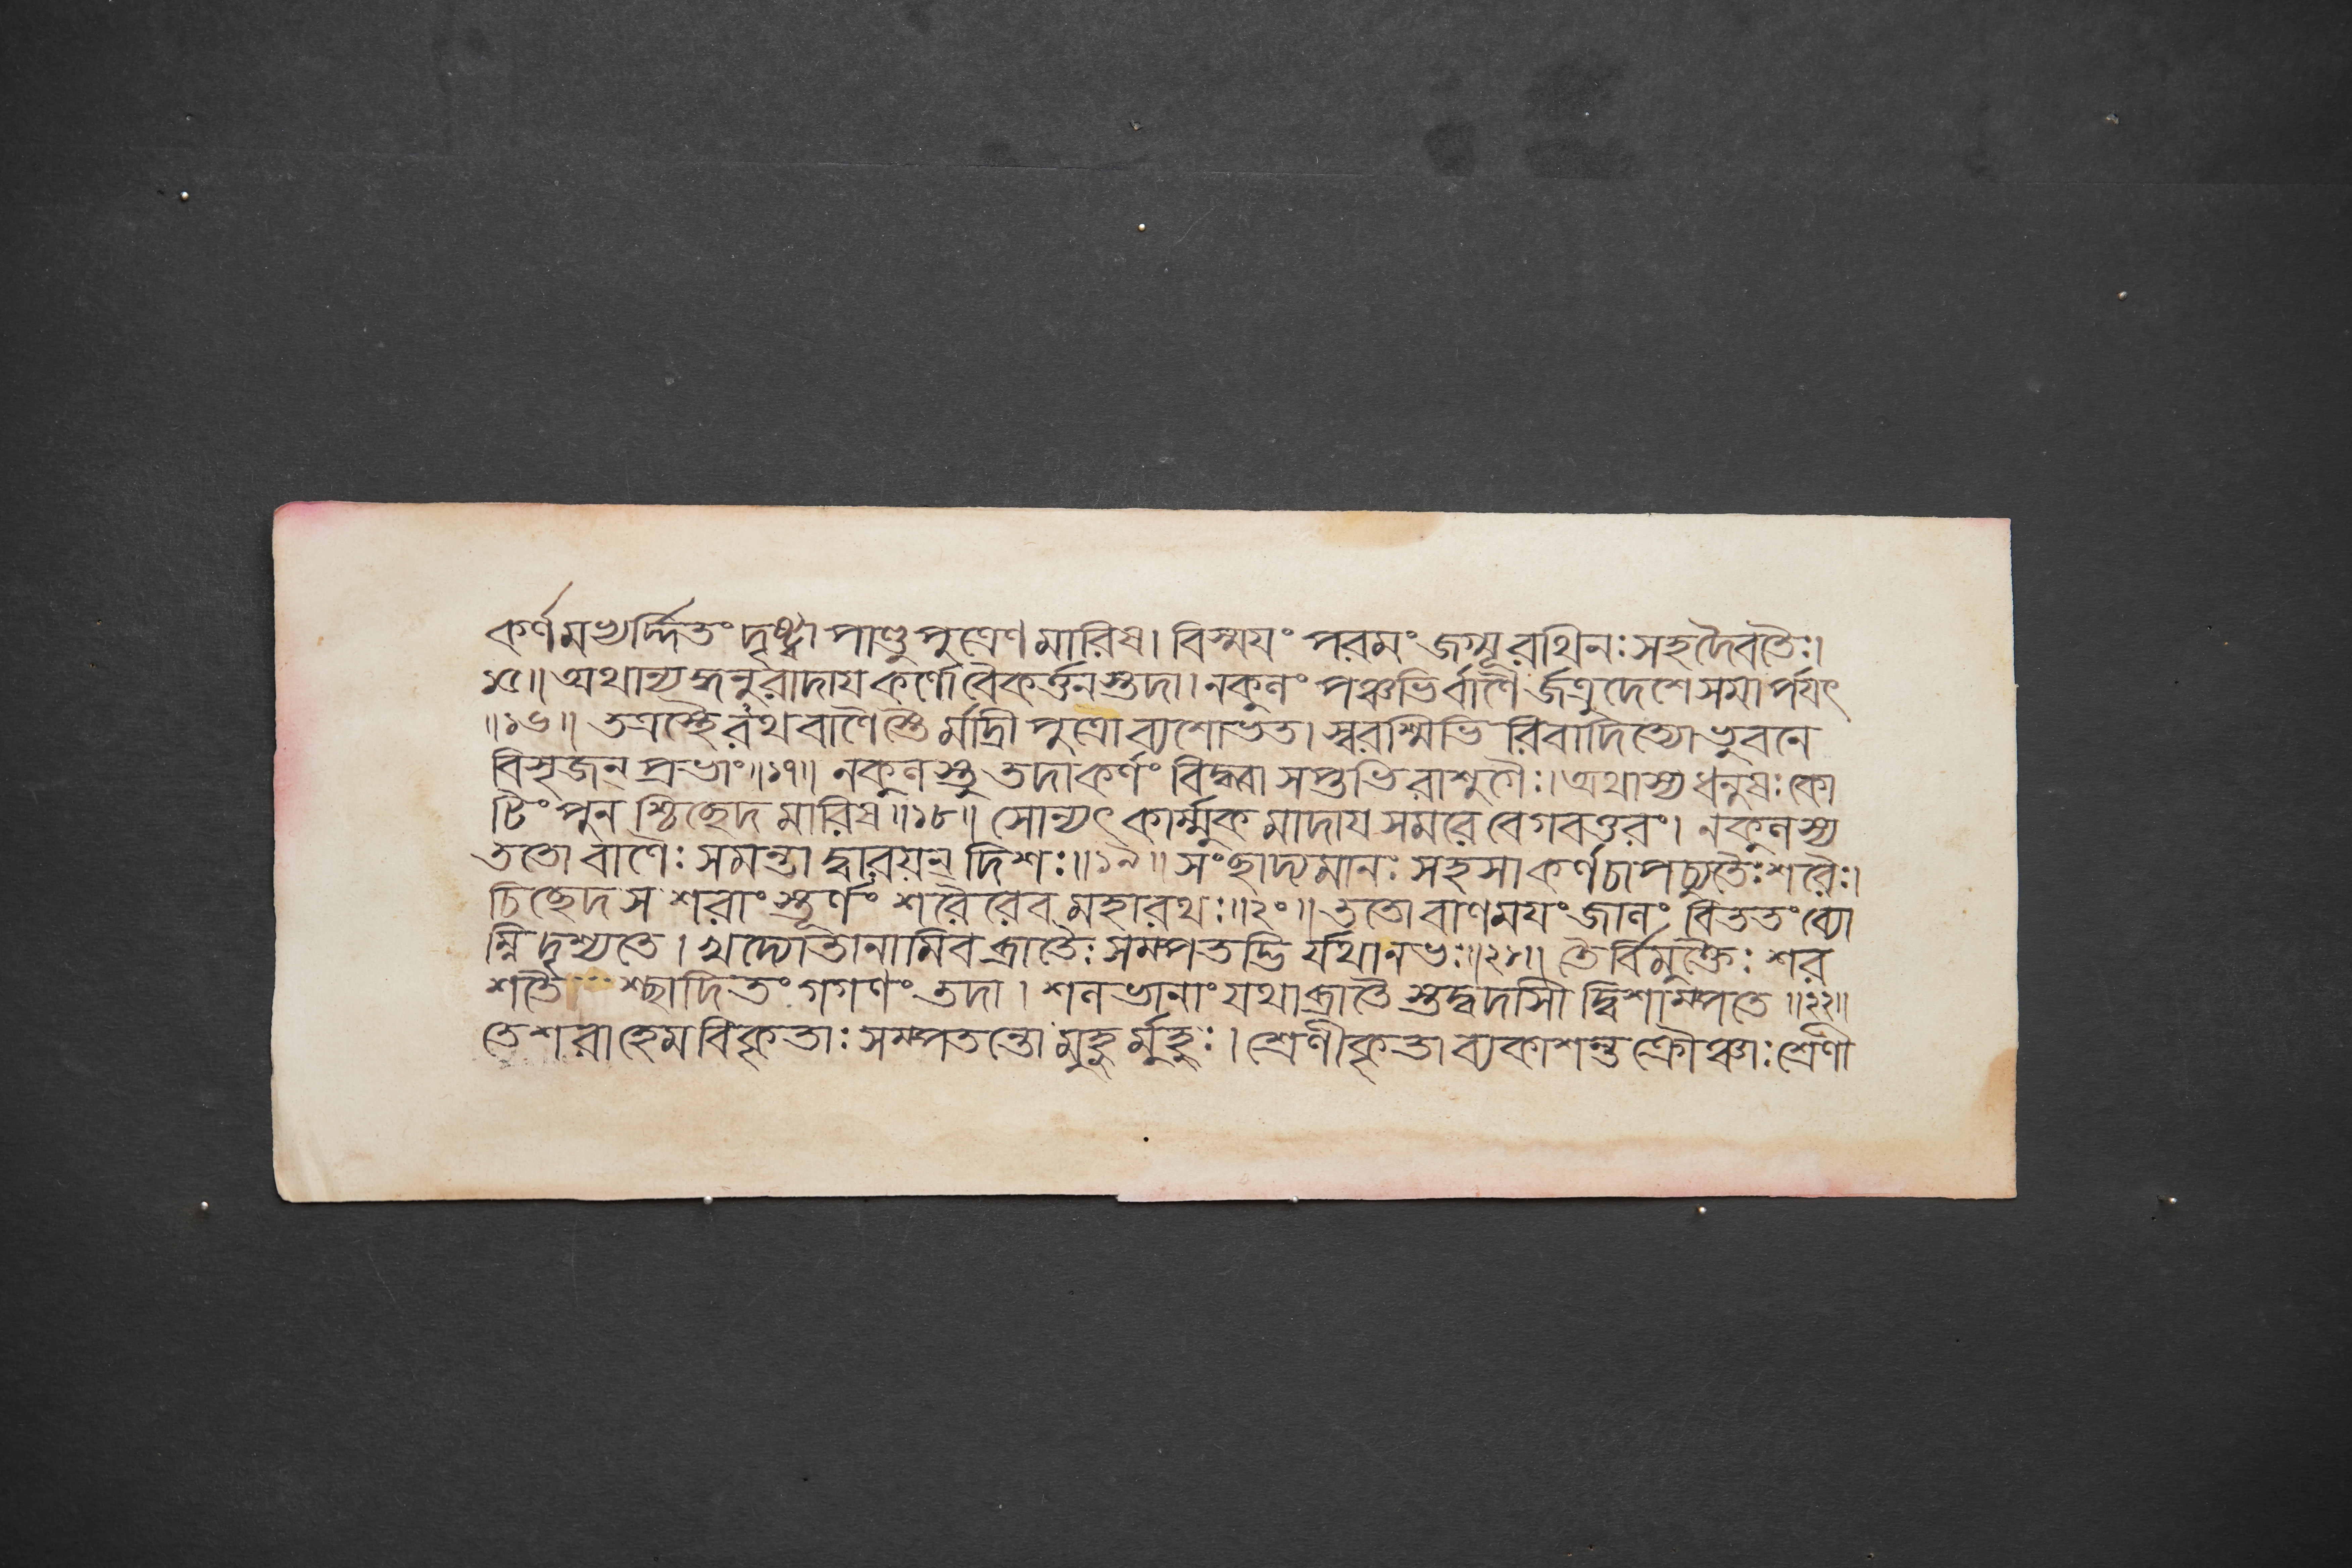 কর্ণমভ্যর্দ্দিতং দৃষ্ট্বা পাণ্ডুপুত্রেণ মারিষ। বিস্ময়ং পরমং জগ্মূ রথিনঃ সহ দৈবতৈঃ।
১৫॥ অথান্যদ্ধনুরাদায় কর্ণো বৈকর্ত্তনস্তদা। নকুলং পঞ্চভির্বাণৈ র্জত্রুদেশে সমার্পয়ৎ
॥১৬॥ তত্রস্থৈরথ বাণৈস্তৈ র্মাদ্রীপুত্রো ব্যশোভত। স্বরশ্মিভি রিবাদিত্যো ভুবনে
বিসৃজন্ প্রভাং॥১৭॥ নকুলস্তু তদা কর্ণং বিদ্ধ্বা সপ্তভিরাশুগৈঃ। অথাস্য ধনুষঃ কো
টিং পুন শ্চিচ্ছেদ মারিষ॥১৮॥ সোন্যৎ কার্ম্মুকমাদায় সমরে বেগবত্তরং। নকুলস্য
ততো বাণৈঃ সমন্তা দ্বারয়ন্ দিশঃ॥১৯॥ সংছাদ্যমানঃ সহসা কর্ণচাপচ্যুতৈঃ শরৈঃ।
চিচ্ছেদ স শরাংস্তূর্ণং শরৈরেব মহারথঃ॥২০॥ ততো বাণময়ং জালং বিততং ব্যো
ম্নি দৃশ্যতে। খদ্যোতানামিব ব্রাতৈঃ সম্পতদ্ভি র্যথা নভঃ॥২১॥ তৈর্বিমুক্তৈঃ শর
শতৈ শ্ছাদিতং গগণং তদা। শলভানাং যথা ব্রাতৈ স্তদ্বদাসী দ্বিশাম্পতে॥২২॥
তে শরা হেমবিকৃতাঃ সম্পতন্তো মুহুর্মুহুঃ। শ্রেণীকৃতা ব্যকাশন্ত ক্রৌঞ্চাঃ শ্রেণী